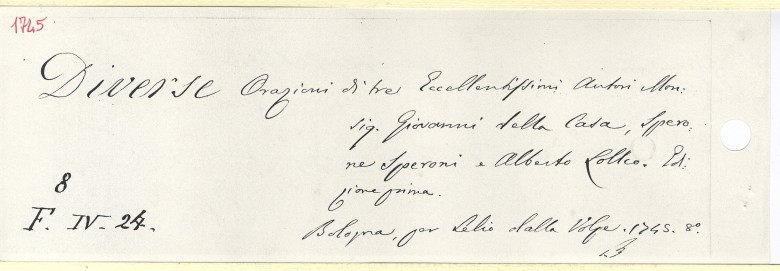 1745
Diverse Orazioni di tre Eccellentissimi Autori Mon:
sig. Giovanni della Casa, Spero:
ne Speroni e Alberto Lollio. Edi:
zione prima.
8
F. IV. 24.
Bologna, per Lelio dalla Volpe. 1745. 8º